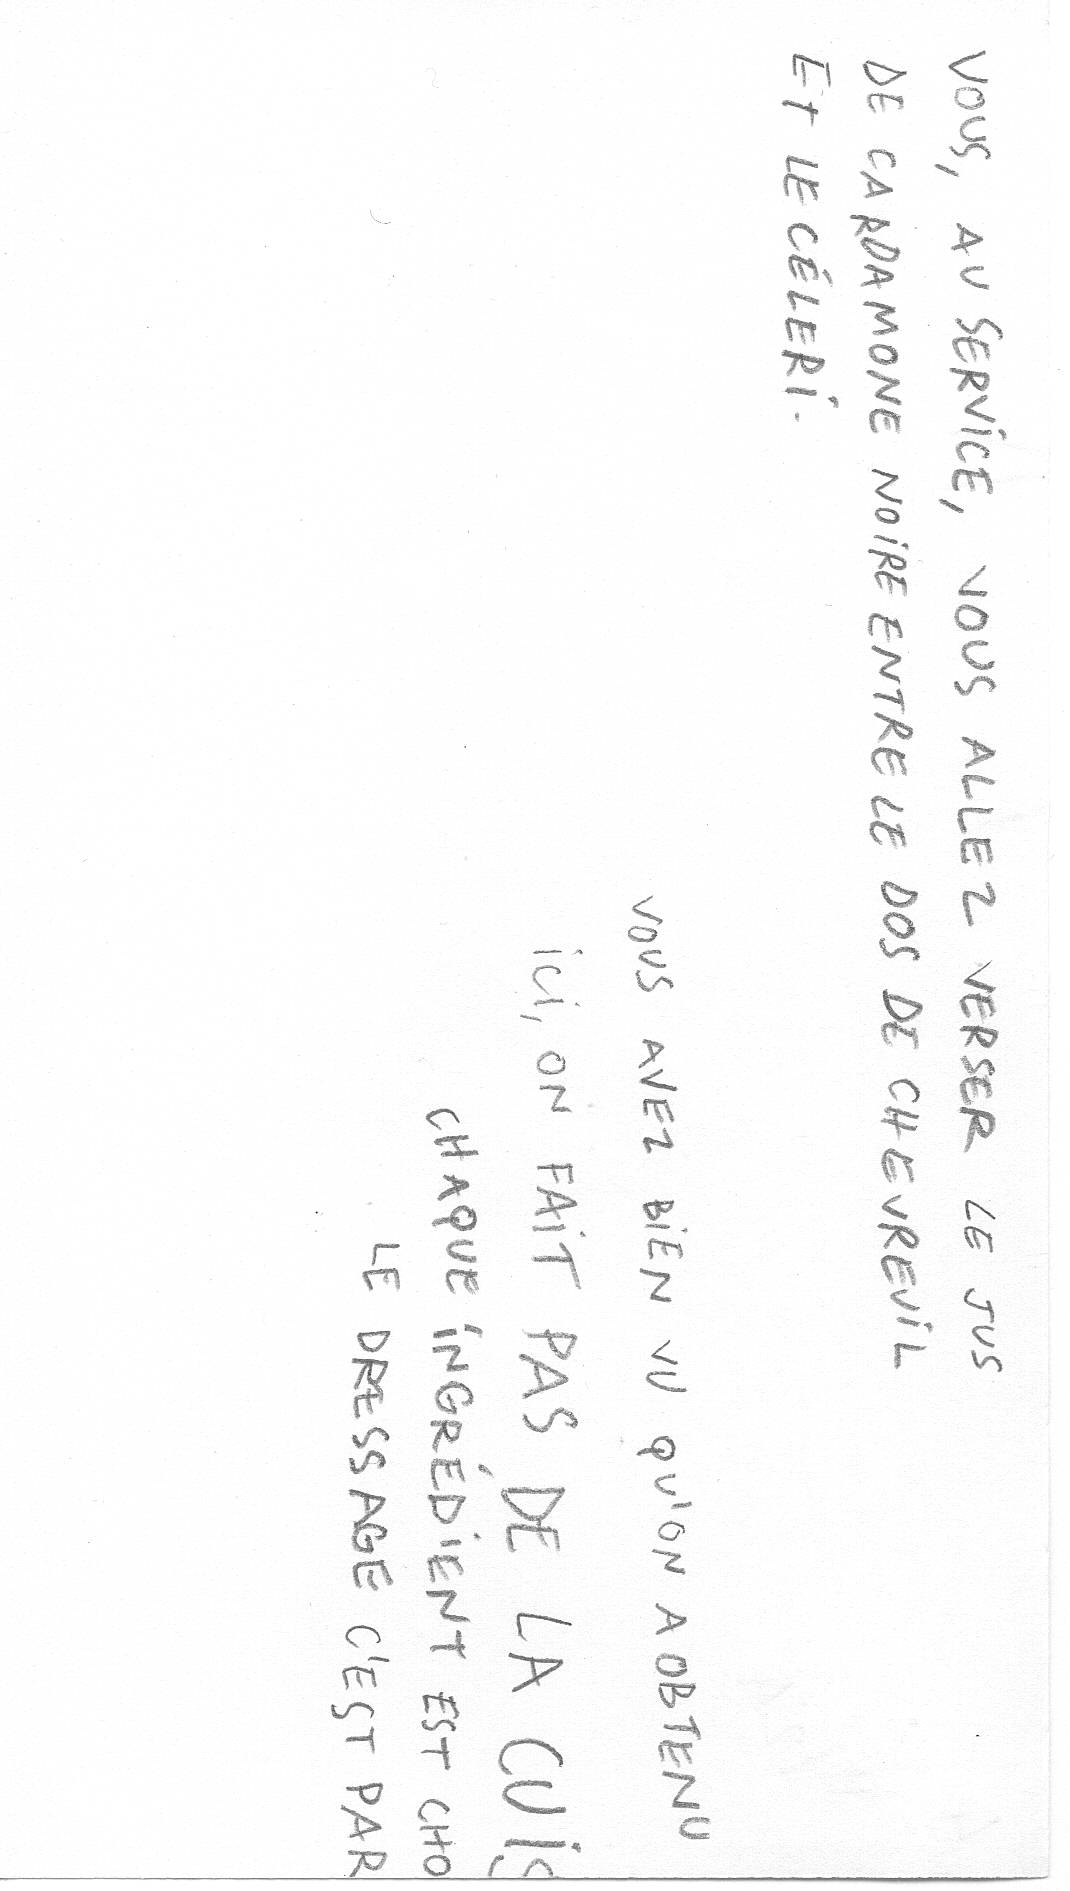 VOUS, AU SERVICE, VOUS ALLEZ VERSER LE JUS
DE CARDAMONE NOIRE ENTRE LE DOS DE CHEVREUIL
ET LE CÉLERI.
VOUS AVEZ BIEN VU QU'ON A OBTENU
ICI, ON FAIT PAS DE LA CUIS
CHAQUE INGRÉDIENT EST CHO
LE DRESSAGE C'EST PAR